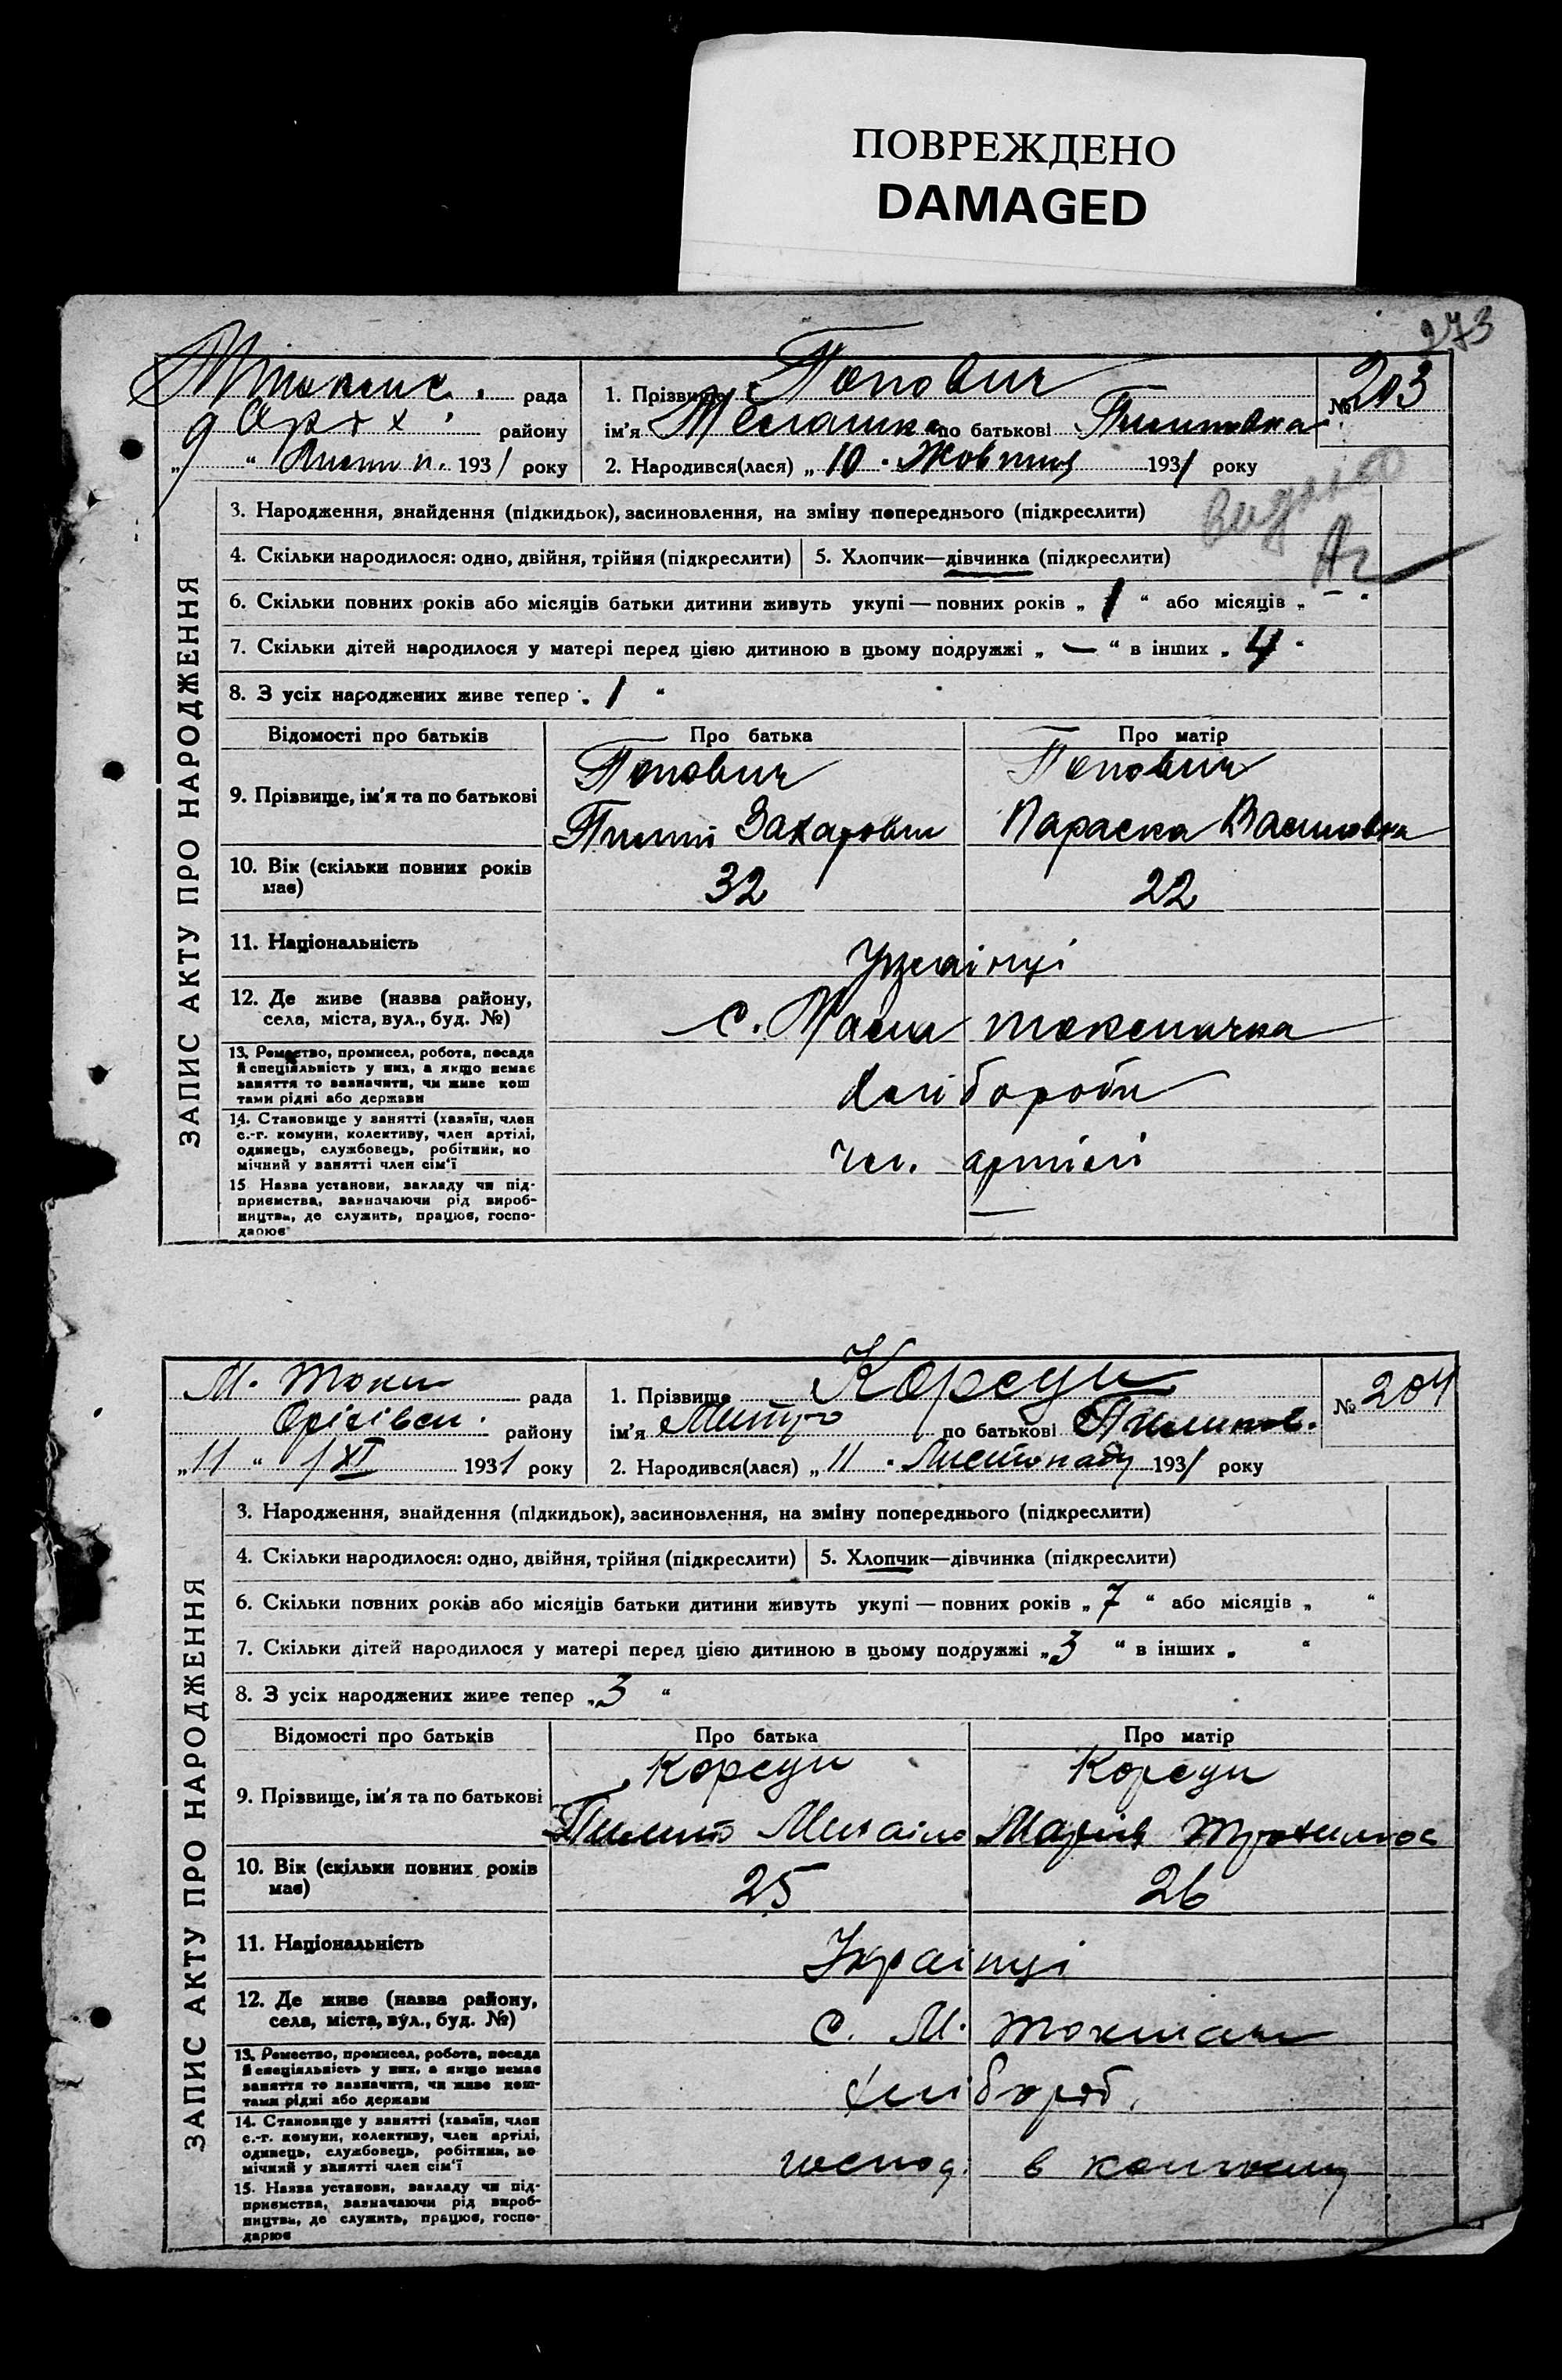 ПОВРЕЖДЕНО
DAMAGED
273
рада
1. Прізвище Попович
№ 203
району
ім'я по батькові Пилиповна
9 " Листоп. 1931 року
2. Народився(лася) „ 10 " Жовтня 1931 року
видано
ЗАПИС АКТУ ПРО НАРОДЖЕННЯ
3. Народження, знайдення (підкидьок), засиновлення, на зміну попереднього (підкреслити)
4. Скільки народилося: одно, двійня, трійня (підкреслити) 5. Хлопчик—дівчинка (підкреслити)
6. Скільки повних років або місяців батьки дитини живуть укупі — повних років „ 1 “ або місяців „ — “
7. Скільки дітей народилося у матері перед цією дитиною в цьому подружжі „ — “ в інших „ 4 “
8. З усіх народжених живе тепер „ 1 “
Відомості про батьків Про батька Про матір
Попович Попович
9. Прізвище, ім'я та по батькові
Пилип Захарович Параска Василовна
10. Вік (скільки повних років
має)
32 22
11. Національність
Українці
12. Де живе (назва району,
села, міста, вул., буд. №)
с. Мала токмачка
13. Ремество, промисел, робота, посада
й спеціяльність у них, а якщо немає
заняття то зазначити, чи живе кош
тами рідні або держави
хлібороби
14. Становище у занятті (хазяїн, член
с.-г. комуни, колективу, член артілі,
одинець, службовець, робітник, по
мічний у занятті член сім'ї
чл. артілі
15 Назва установи, закладу чи під-
приємства, зазначаючи рід вироб-
ництва, де служить, працює, госпо-
дарює
—
М. Токм рада
1. Прізвище Корсун
№ 204
Оріхівськ. району
ім'я Митро по батькові Пилипов.
„ 11 “ /XI 1931 року
2. Народився(лася) „ 11 " Листопаду 1931 року
ЗАПИС АКТУ ПРО НАРОДЖЕННЯ
3. Народження, знайдення (підкидьок), засиновлення, на зміну попереднього (підкреслити)
4. Скільки народилося: одно, двійня, трійня (підкреслити) 5. Хлопчик—дівчинка (підкреслити)
6. Скільки повних років або місяців батьки дитини живуть укупі — повних років „ 7 “ або місяців „ “
7. Скільки дітей народилося у матері перед цією дитиною в цьому подружжі „ 3 “ в інших „ “
8. З усіх народжених живе тепер „ 3 “
Відомості про батьків Про батька Про матір
Корсун Корсун
9. Прізвище, ім'я та по батькові
Пилип Михайло Марія Трохимов
10. Вік (скільки повних років
має)
25 26
11. Національність
Українці
12. Де живе (назва району,
села, міста, вул., буд. №)
с. М. Токмач
13. Ремество, промисел, робота, посада
й спеціяльність у них, а якщо немає
заняття то зазначити, чи живе кош-
тами рідні або держави
хлібороб.
14. Становище у занятті (хазяїн, член
с.-г. комуни, колективу, член артілі,
одинець, службовець, робітник, по
мічний у занятті член сім'ї
господ. в колгоспу
15. Назва установи, закладу чи під-
приємства, зазначаючи рід вироб-
ництва, де служить, працює, госпо-
дарює